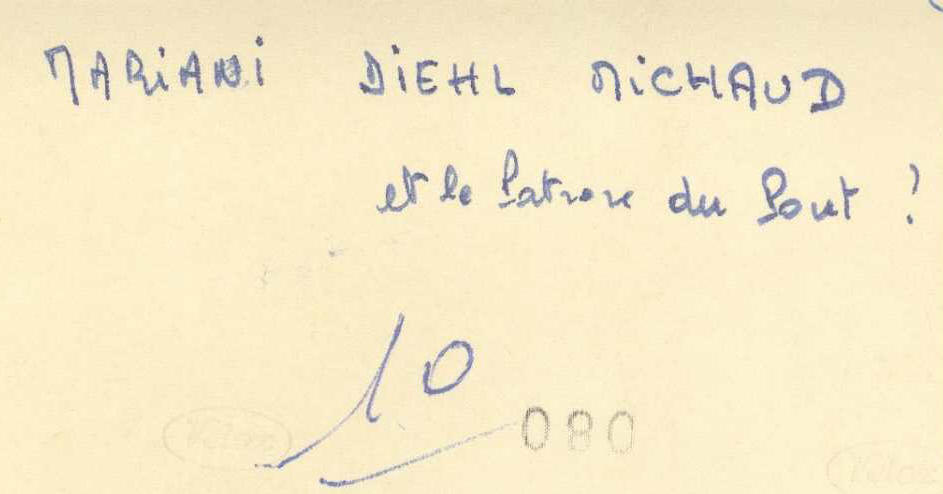 MARiANi DiEHL MiCHAUD
et le Patron du Pont ?
10
080
Velox